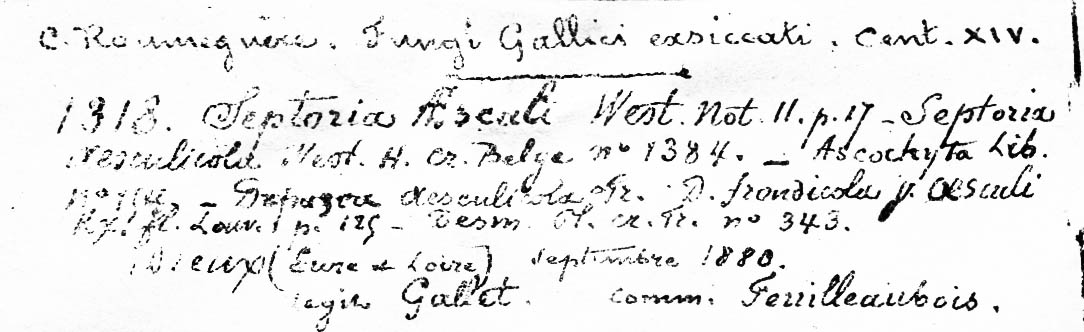 C. Roumeguère. Fungi Gallici exsiccati. Cent. XIV.
1318. Septoria Æsculi West. Not. II. p. 17 - Septoria
Aesculicola West. H. cr. Belge nº 1384. - Ascochyta Lib.
- Depazea Aesculicola Fr. D. frondicola γ. aesculi
Kx! fl. Louv. p. 125 - Desm. Pl. cr. Fr. nº 343.
Dreux (Eure & Loire) septembre 1880.
legit Gallet. comm. Feuilleaubois.